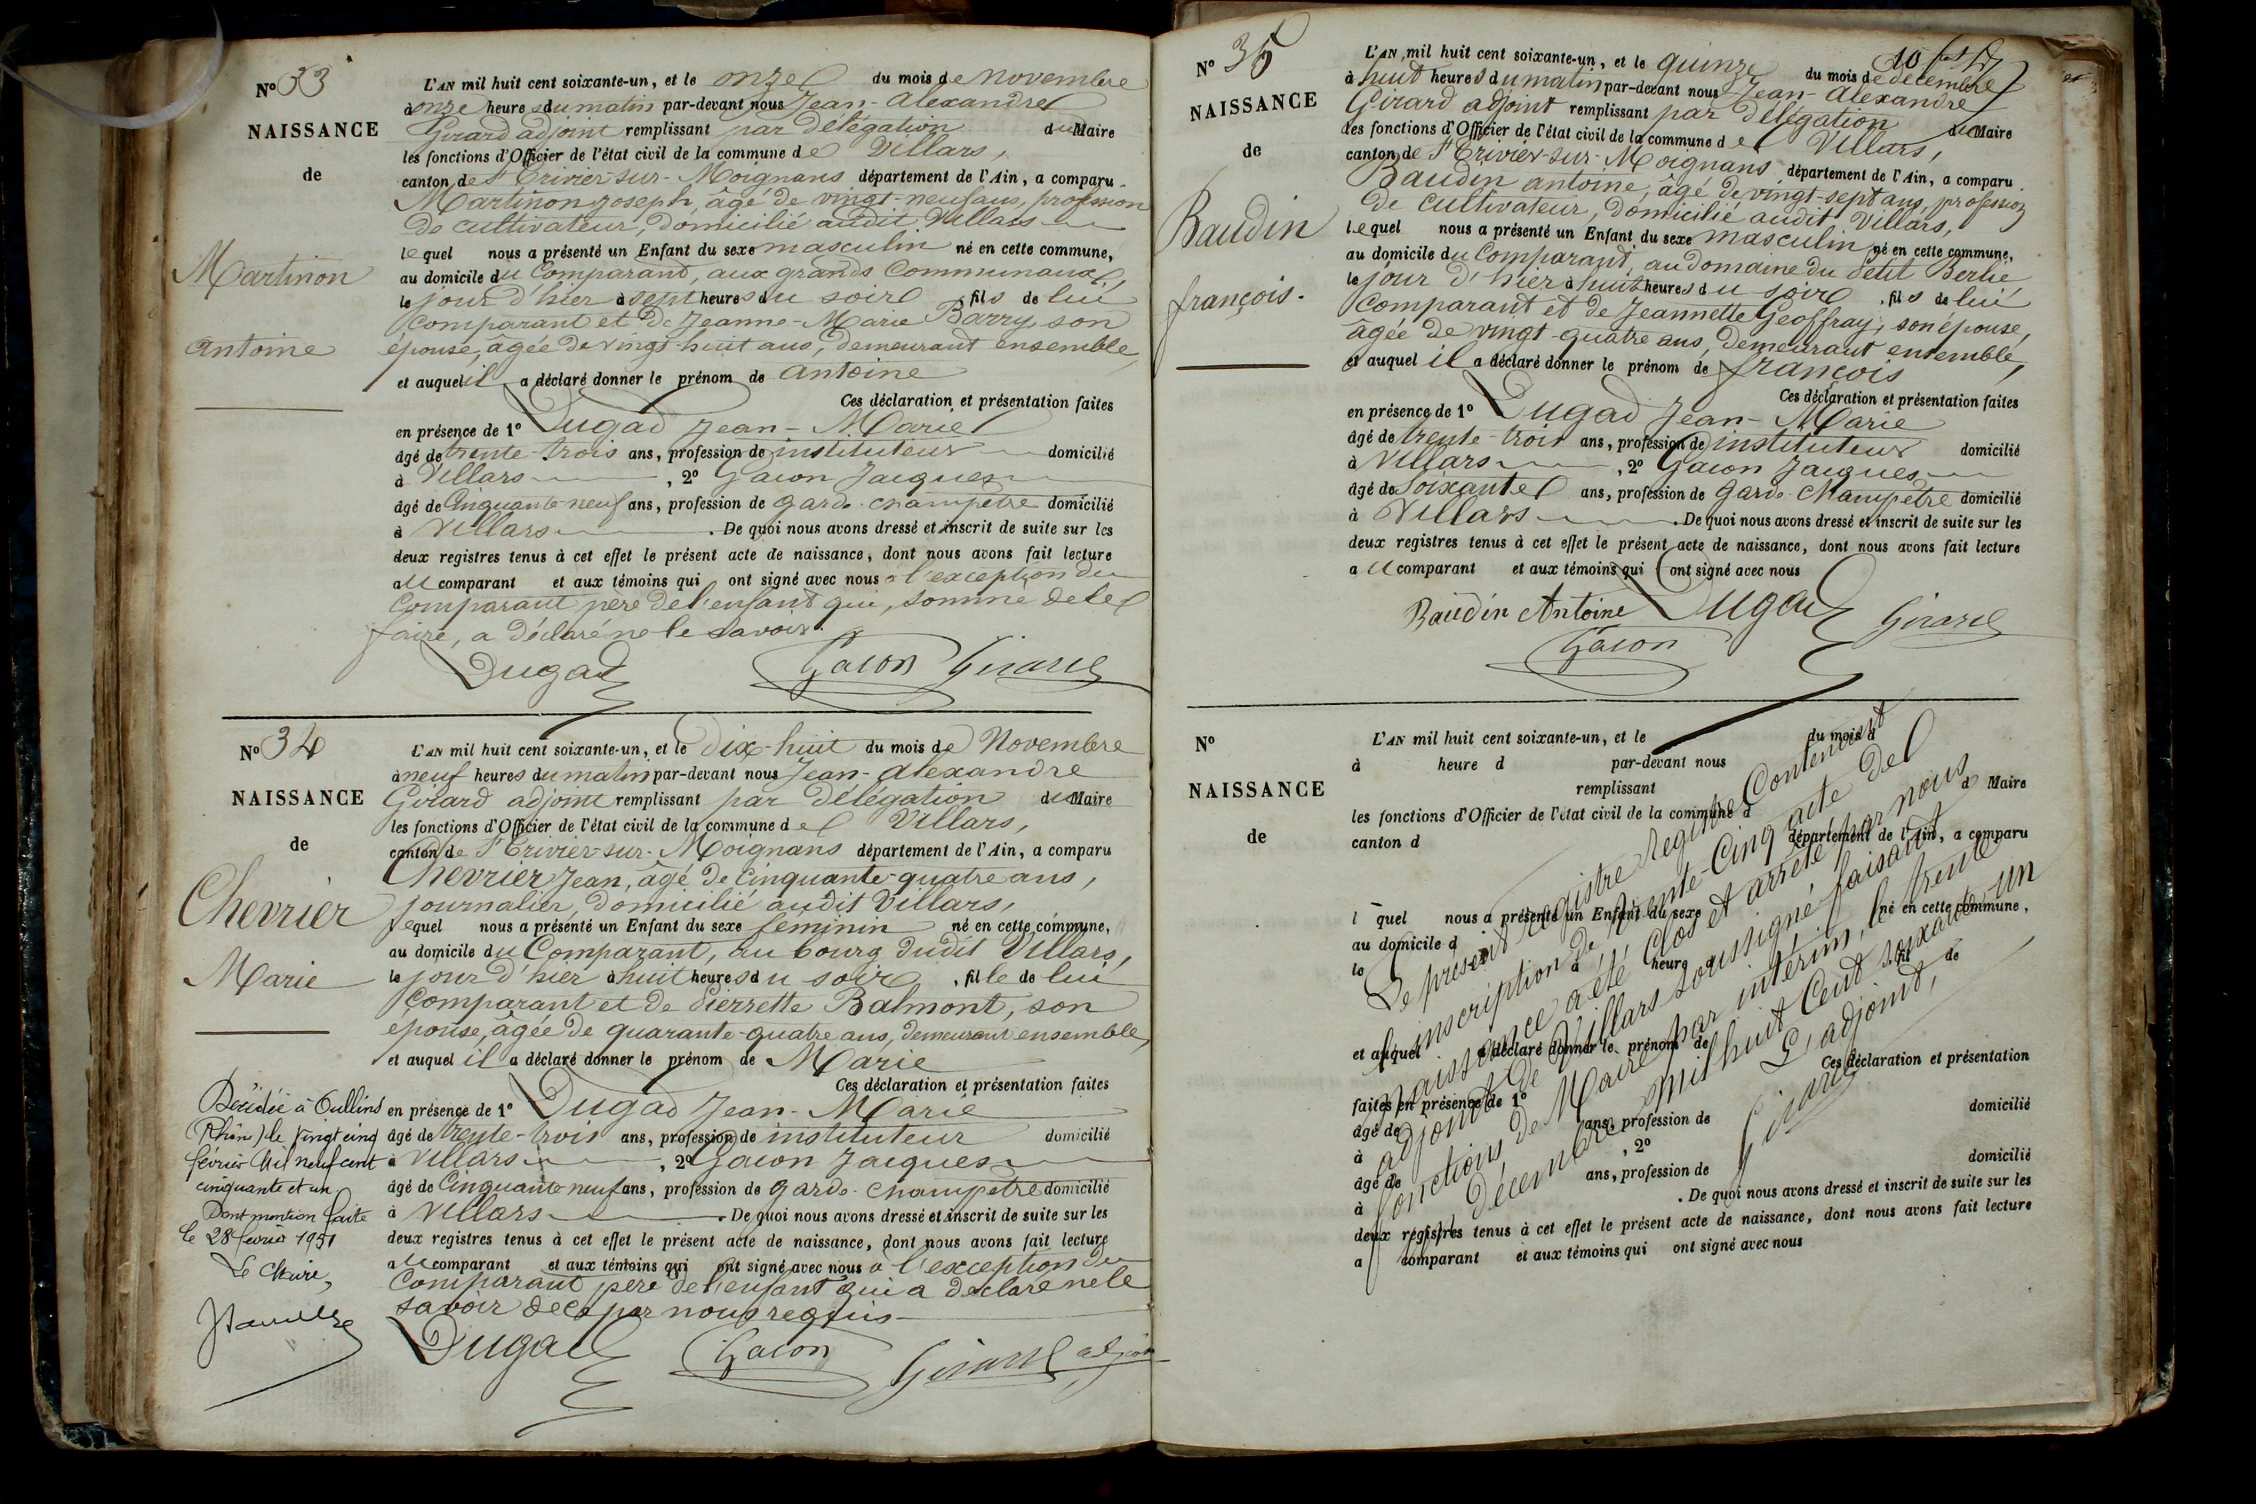 N° 33
NAISSANCE
de
Martinon
Antoine
L'AN mil huit cent soixante-un, et le onze du mois de Novembre
à onze heures du matin par-devant nous Jean-Alexandre
Girard adjoint remplissant par délégation du Maire
les fonctions d'Officier de l'état civil de la commune de Villars,
canton de St Trivier-sur-Moignans département de l'Ain, a comparu
Martinon Joseph, âgé de vingt-neuf ans, profession
de cultivateur, domicilié audit Villars
lequel nous a présenté un Enfant du sexe masculin né en cette commune,
au domicile du Comparant, aux grands Communaux,
le jour d'hier à sept heures du soir, fils de lui
comparant et de Jeanne-Marie Barry son
épouse, âgée de vingt-huit ans, demeurant ensemble,
et auquel il a déclaré donner le prénom de Antoine
Ces déclaration et présentation faites
en présence de 1° Dugad Jean-Marie
âgé de trente-trois ans, profession de instituteur domicilié
à Villars, 2° Gacon Jacques
âgé de Cinquante-neuf ans, profession de garde-champêtre domicilié
à Villars. De quoi nous avons dressé et inscrit de suite sur les
deux registres tenus à cet effet le présent acte de naissance, dont nous avons fait lecture
au comparant et aux témoins qui ont signé avec nous à l'exception du
Comparant père de l'enfant qui, sommé de le
faire, a déclaré ne le savoir.
Dugad Gacon Girard
N° 34
NAISSANCE
de
Chevrier
Marie
L'AN mil huit cent soixante-un, et le dix-huit du mois de Novembre
à neuf heures du matin par-devant nous Jean-Alexandre
Girard adjoint remplissant par délégation du Maire
les fonctions d'Officier de l'état civil de la commune de Villars,
canton de St Trivier-sur-Moignans département de l'Ain, a comparu
Chevrier Jean, âgé de Cinquante-quatre ans,
journalier, domicilié audit Villars,
lequel nous a présenté un Enfant du sexe féminin né en cette commune,
au domicile du Comparant, au bourg dudit Villars,
le jour d'hier à huit heures du soir, fille de lui
Comparant et de Pierrette Balmont, son
épouse, âgée de quarante-quatre ans, demeurant ensemble,
et auquel il a déclaré donner le prénom de Marie
Ces déclaration et présentation faites
en présence de 1° Dugad Jean-Marie
âgé de trente-trois ans, profession de instituteur domicilié
à Villars, 2° Gacon Jacques
âgé de Cinquante neuf ans, profession de garde-champêtre domicilié
à Villars. De quoi nous avons dressé et inscrit de suite sur les
deux registres tenus à cet effet le présent acte de naissance, dont nous avons fait lecture
au comparant et aux témoins qui ont signé avec nous à l'exception du
Comparant père de l'enfant qui a déclaré ne le
savoir de ce par nous requis
Dugad Gacon Girard adjoint
Décédée à Oullins
(Rhône) le vingt cinq
février Mil neuf cent
cinquante et un
Dont mention faite
le 28 février 1951
Le Maire,
N° 35
NAISSANCE
de
Baudin
françois.
L'AN mil huit cent soixante-un, et le quinze du mois de décembre
à huit heures du matin par-devant nous Jean-Alexandre
Girard adjoint remplissant par délégation du Maire
les fonctions d'Officier de l'état civil de la commune de Villars,
canton de St Trivier-sur-Moignans département de l'Ain, a comparu
Baudin antoine, âgé de vingt-sept ans, profession
de cultivateur, domicilié audit Villars,
lequel nous a présenté un Enfant du sexe masculin né en cette commune,
au domicile du Comparant, au domaine du Petit Berlie,
le jour d'hier à huit heures du soir, fils de lui
Comparant et de Jeannette Geoffray, son épouse,
âgée de vingt-quatre ans, demeurant ensemble,
et auquel il a déclaré donner le prénom de françois
Ces déclaration et présentation faites
en présence de 1° Dugad Jean-Marie
âgé de trente-trois ans, profession de instituteur domicilié
à Villars, 2° Gacon Jacques
âgé de Soixante ans, profession de garde-Champêtre domicilié
à Villars. De quoi nous avons dressé et inscrit de suite sur les
deux registres tenus à cet effet le présent acte de naissance, dont nous avons fait lecture
au comparant et aux témoins qui ont signé avec nous
Baudin Antoine Dugad Girard
Gacon
N°
NAISSANCE
de
L'AN mil huit cent soixante-un, et le du mois d
à heure d par-devant nous
remplissant d Maire
les fonctions d'Officier de l'état civil de la commune d
canton d département de l'Ain, a comparu
l quel nous a présenté un Enfant du sexe né en cette commune,
au domicile d
le à heure d, fil de
et auquel a déclaré donner le prénom de
Ces déclaration et présentation
faites en présence de 1°
âgé de ans, profession de domicilié
à , 2°
âgé de ans, profession de domicilié
à . De quoi nous avons dressé et inscrit de suite sur les
deux registres tenus à cet effet le présent acte de naissance, dont nous avons fait lecture
a comparant et aux témoins qui ont signé avec nous
Le présent registre Registre Contenant
l'inscription de trente-Cinq acte de
naissance a été clos et arrêté par nous
adjoint de Villars soussigné faisant
fonctions de Maire par intérim, le trente
un décembre mil huit Cent soixante un
L'adjoint,
Girard